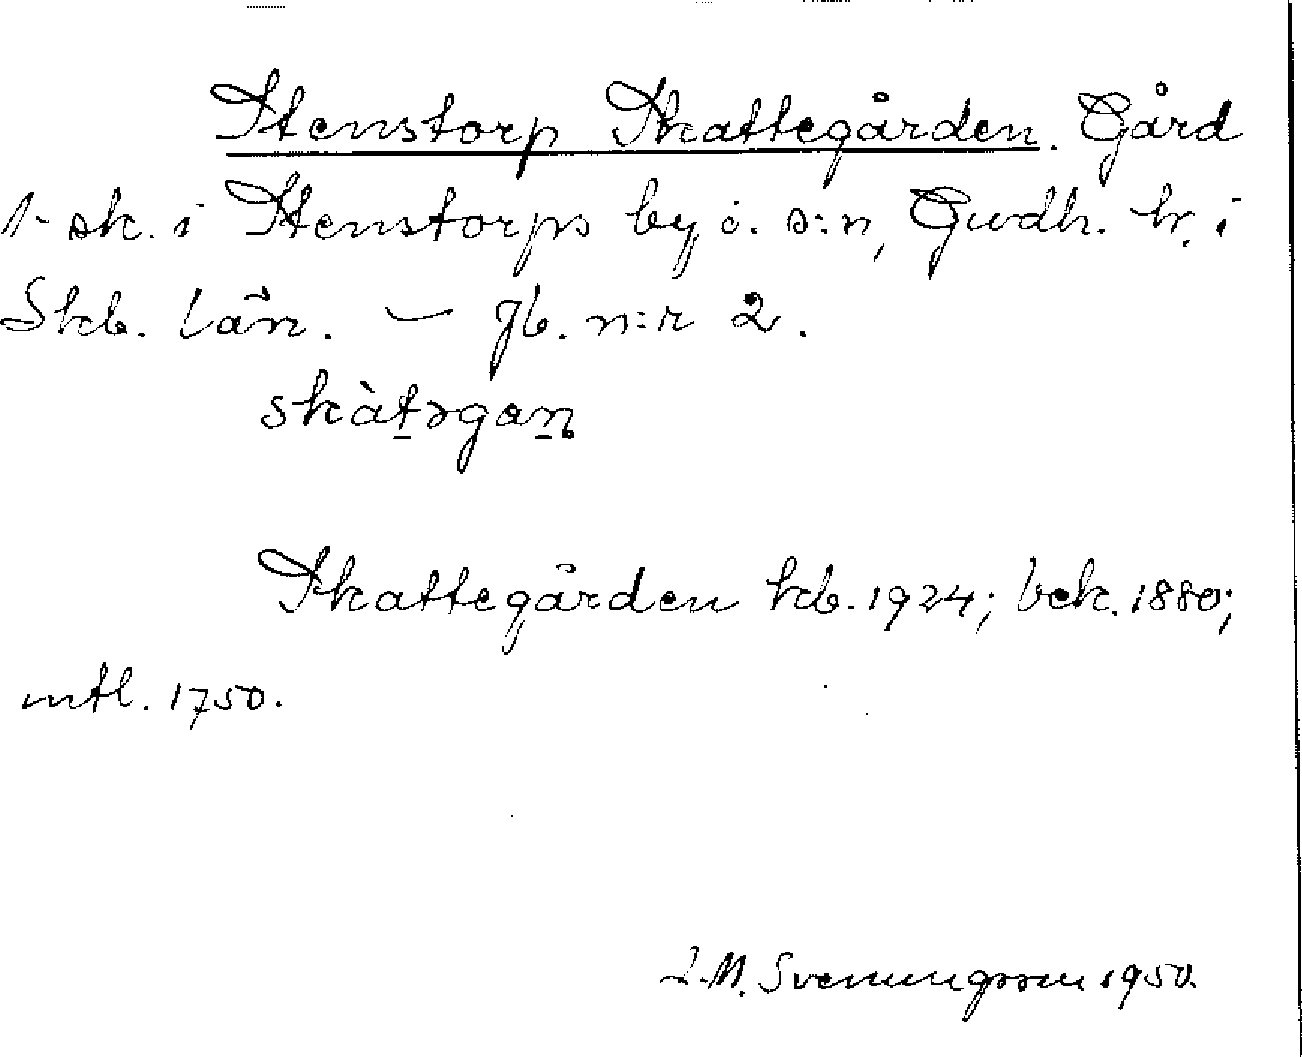 Stenstorp Skattegården. Gård
1 sk. i Stenstorps by o. s:n, Gudh. hr. i
Skb. län. — jb. n:r 2.
skàtəgaṇ
Skattegården kb. 1924; bek. 1880;
mtl. 1750.
L.M. Svenungsson 1950.